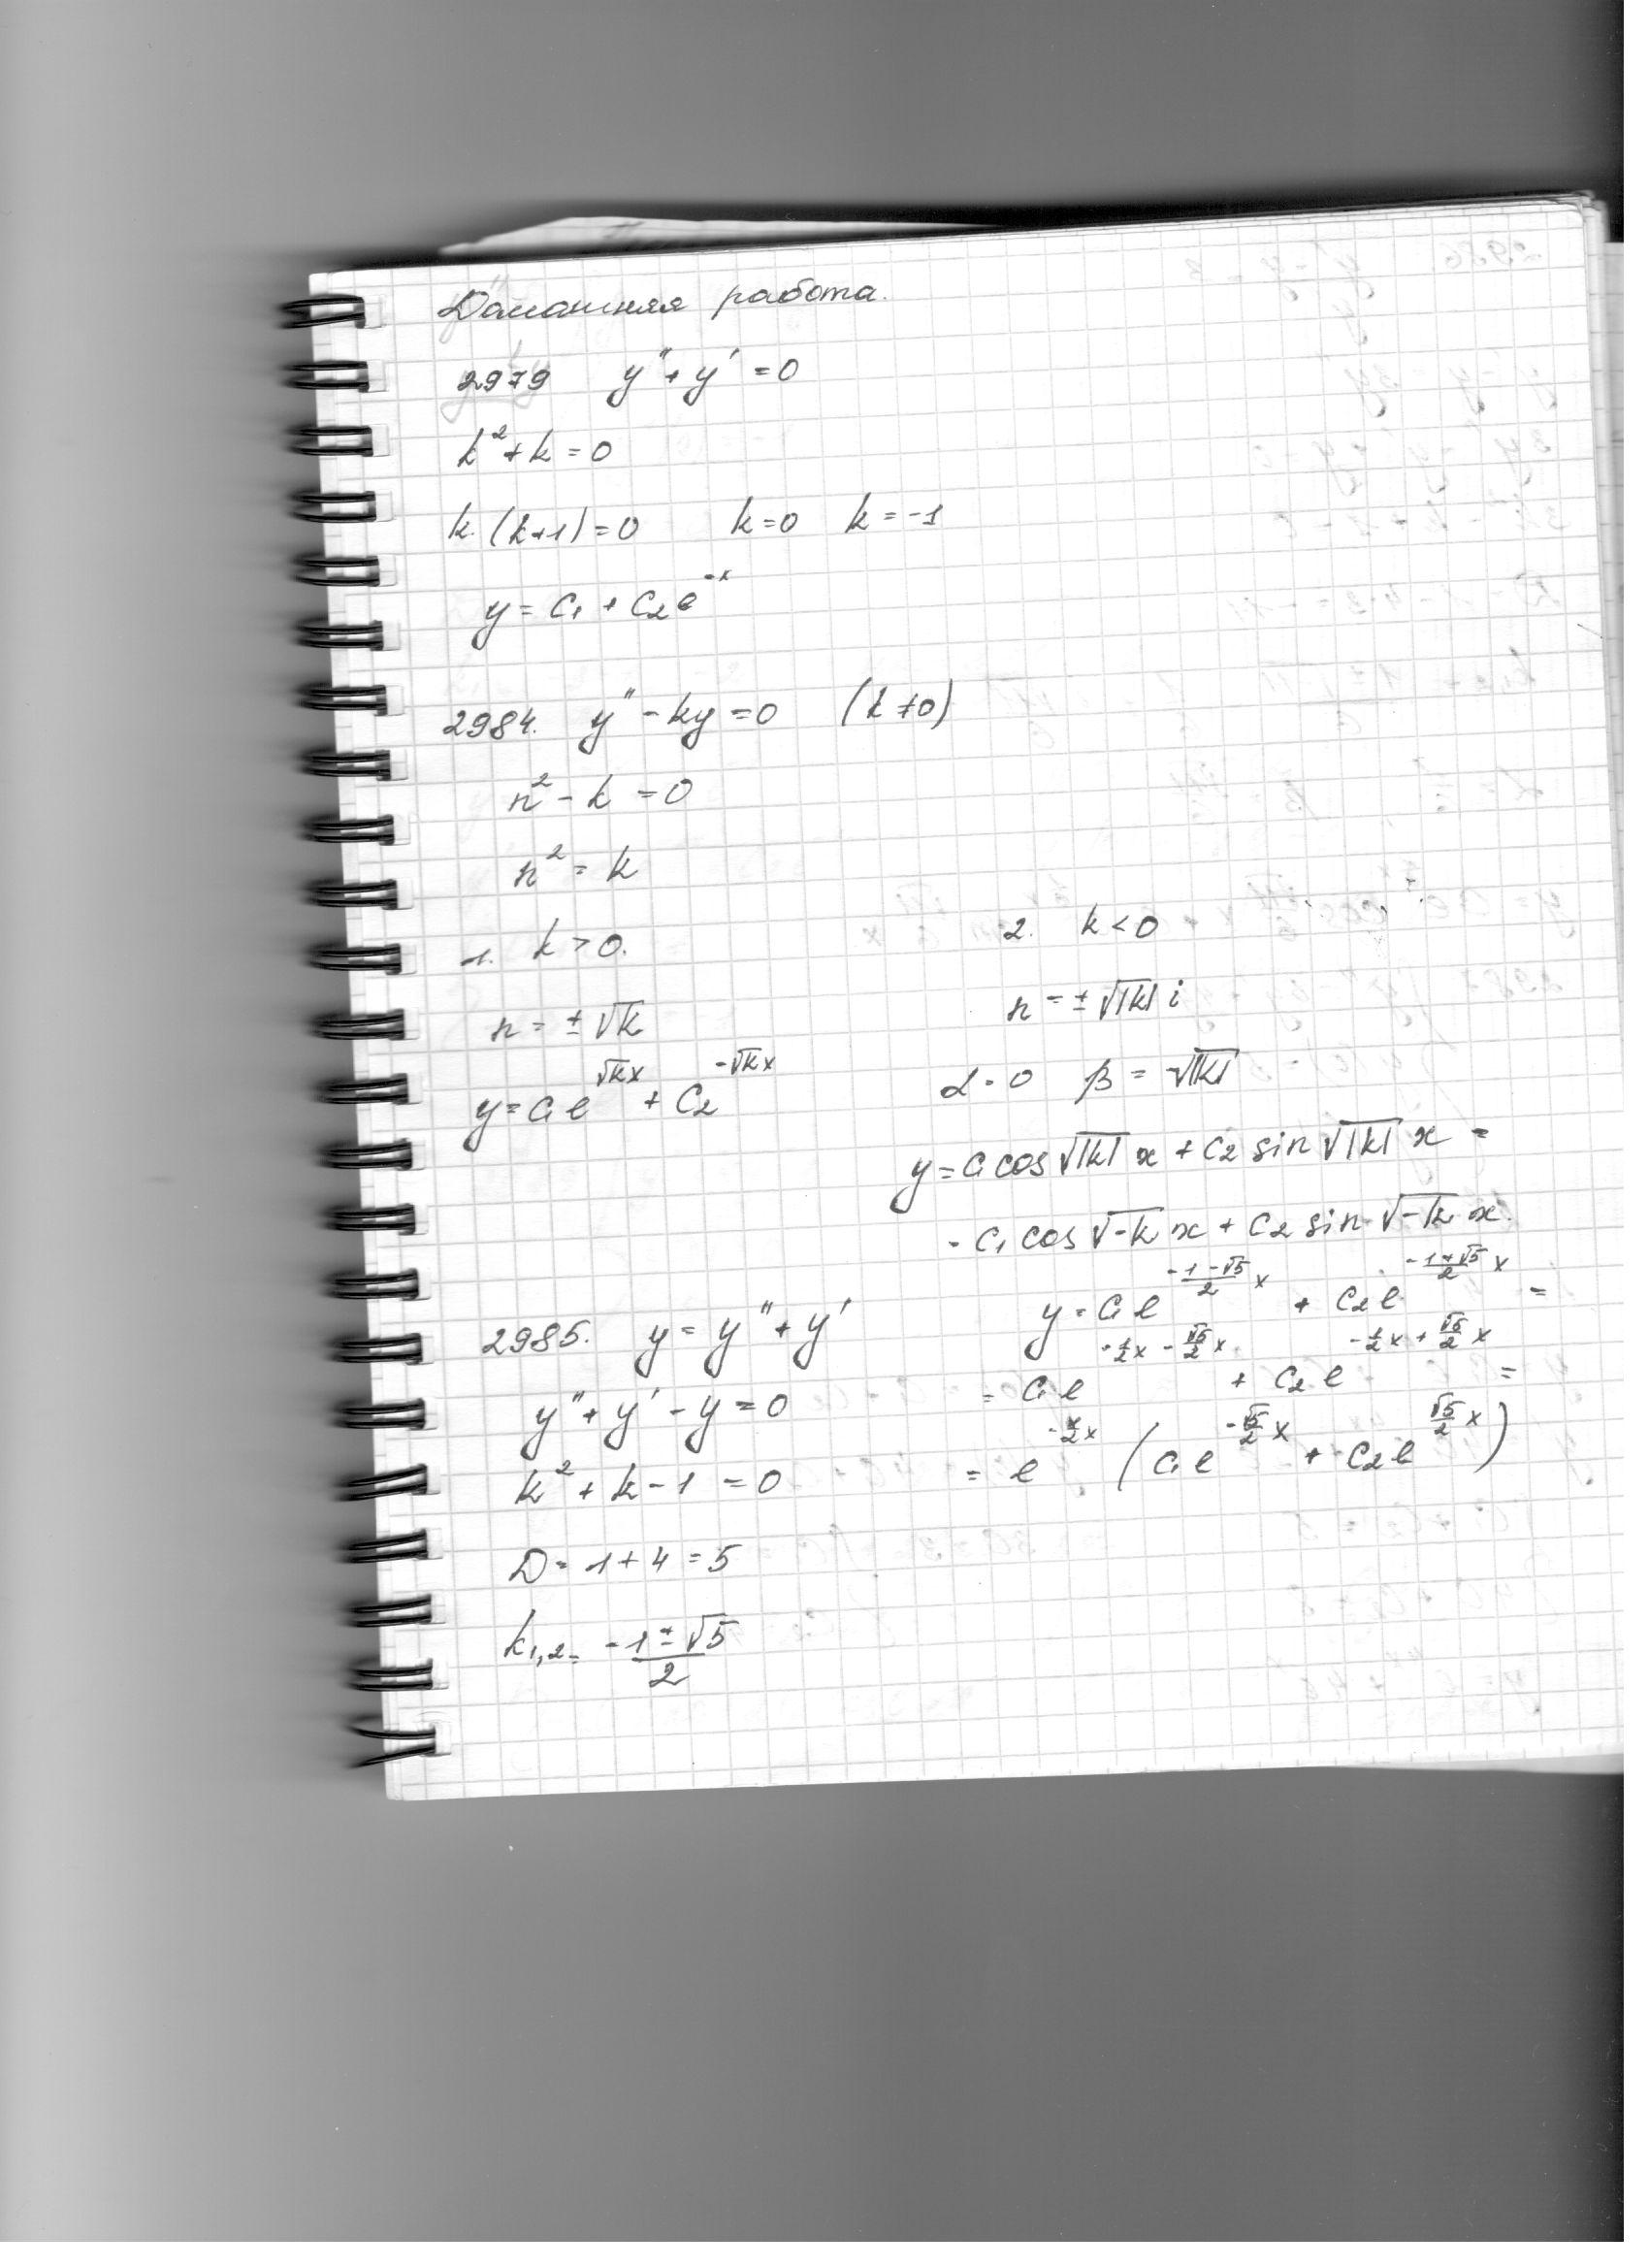 Домашняя работа.
2979 y'' + y' = 0
k² + k = 0
k·(k+1) = 0 k = 0 k = -1
y = C₁ + C₂e^{-x}
2984. y'' - ky = 0 (k ≠ 0)
n² - k = 0
n² = k
1. k > 0.
n = ± √k
y = C₁e^{√k x} + C₂^{-√k x}
2. k < 0
n = ± √|k| i
α = 0 β = √|k|
y = C₁ cos √|k| x + C₂ sin √|k| x =
= C₁ cos √-k x + C₂ sin √-k x.
2985. y = y'' + y'
y'' + y' - y = 0
k² + k - 1 = 0
D = 1 + 4 = 5
k₁,₂ = (-1 ± √5)/2
y = C₁e^{(-1-√5)/2 x} + C₂e^{(-1+√5)/2 x} =
= C₁e^{-1/2 x - √5/2 x} + C₂e^{-1/2 x + √5/2 x} =
= e^{-1/2 x} (C₁e^{-√5/2 x} + C₂e^{√5/2 x})